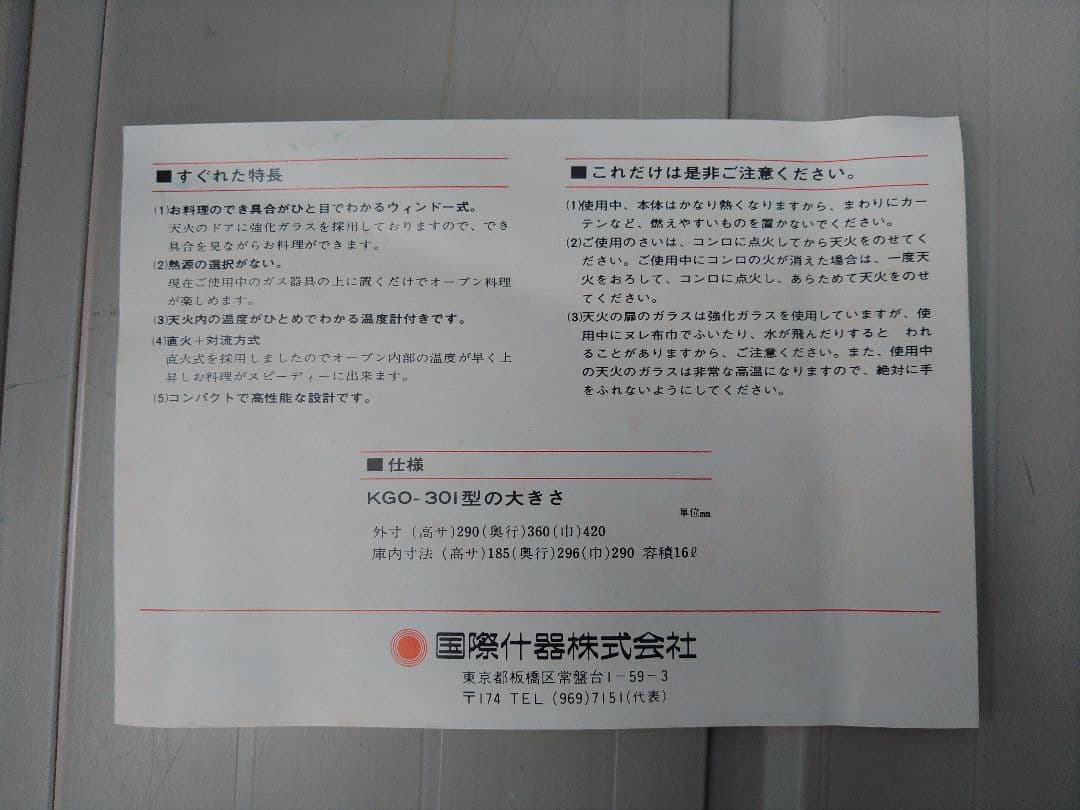 ■すぐれた特長
(1)お料理のでき具合がひと目でわかるウィンドー式。
天火のドアに強化ガラスを採用しておりますので、でき
具合を見ながらお料理ができます。
(2)熱源の選択がない。
現在ご使用中のガス器具の上に置くだけでオーブン料理
が楽しめます。
(3)天火内の温度がひとめでわかる温度計付きです。
(4)直火+対流方式
直火式を採用しましたのでオーブン内部の温度が早く上
昇しお料理がスピーディーに出来ます。
(5)コンパクトで高性能な設計です。
■これだけは是非ご注意ください。
(1)使用中、本体はかなり熱くなりますから、まわりにカー
テンなど、燃えやすいものを置かないでください。
(2)ご使用のさいは、コンロに点火してから天火をのせてく
ださい。ご使用中にコンロの火が消えた場合は、一度天
火をおろして、コンロに点火し、あらためて天火をのせ
てください。
(3)天火の扉のガラスは強化ガラスを使用していますが、使
用中にヌレ布巾でふいたり、水が飛んだりすると われ
ることがありますから、ご注意ください。また、使用中
の天火のガラスは非常な高温になりますので、絶対に手
をふれないようにしてください。
■仕様
KGO-301型の大きさ
単位mm
外寸(高サ)290(奥行)360(巾)420
庫内寸法(高サ)185(奥行)296(巾)290 容積16ℓ
国際什器株式会社
東京都板橋区常盤台1-59-3
〒174 TEL (969)7151(代表)